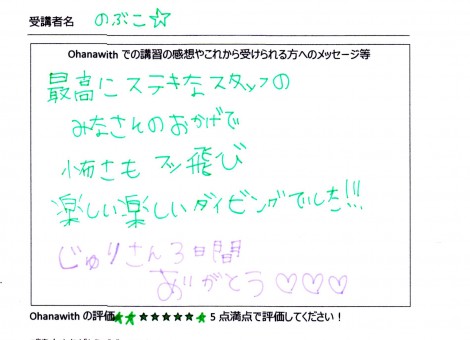 受講者名 のぶこ☆
Ohanawith での講習の感想やこれから受けられる方へのメッセージ等
最高にステキなスタッフの
みなさそのおかげで
怖さも フッ飛び
楽しい楽しいダイビングでした!!!
じゅりさん3日間
ありがとう♡♡♡
Ohanawith の評価★★★★★★★★5 点満点で評価してください！